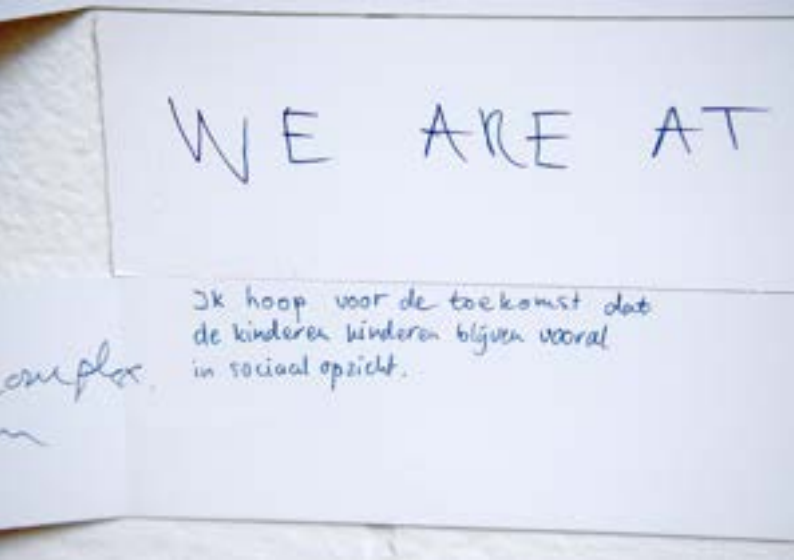 WE ARE AT
Ik hoop voor de toekomst dat
de kinderen kinderen blijven vooral
in sociaal opzicht.